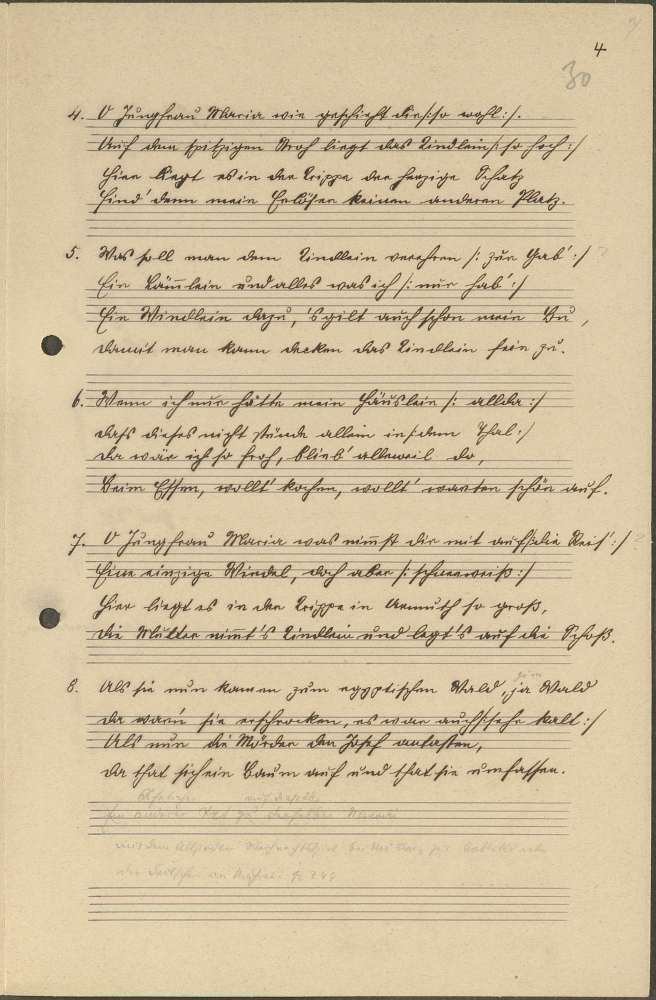 4
30
4. O Jungfrau Maria wie geschieht dir /: so wohl :/.
Auf dem spitzigen Stroh liegt das Kindlein /: so hoch :/
Hier liegt es in der Krippe der herzige Schatz
Find' denn mein Erlöser keinen anderen Platz.
5. Was soll man dem Kindlein verehren /: zur Gab' :/
Ein Lämlein und alles was ich /: nur hab' :/
Ein Windlein dazu, 's gilt auch schon mein Bu,
damit man kann decken das Kindlein fein zu.
6. Wenn ich nur hätte mein Häuslein /: allda :/
dass dieses nicht stünde allein in /: dem Thal :/
da wär ich so froh, blieb' alleweil do,
Beim Essen, wollt' kochen, wollt' warten schön auf.
7. O Jungfrau Maria was nimst dir mit auf /: die Reis' :/
Eine einzige Windel, doch aber /: schneeweiß :/
Hier liegt es in der Krippe in Armuth so groß,
die Mutter nimt's Kindlein und legt's auf die Schoß.
8. Als sie nun kamen zum egyptischen Wald, ja Wald
da warn sie erschrocken, es war auch /: sehr kalt :/
Als nun die Mörder den Josef anfassten,
da that sich ein Baum auf und that sie umfassen.